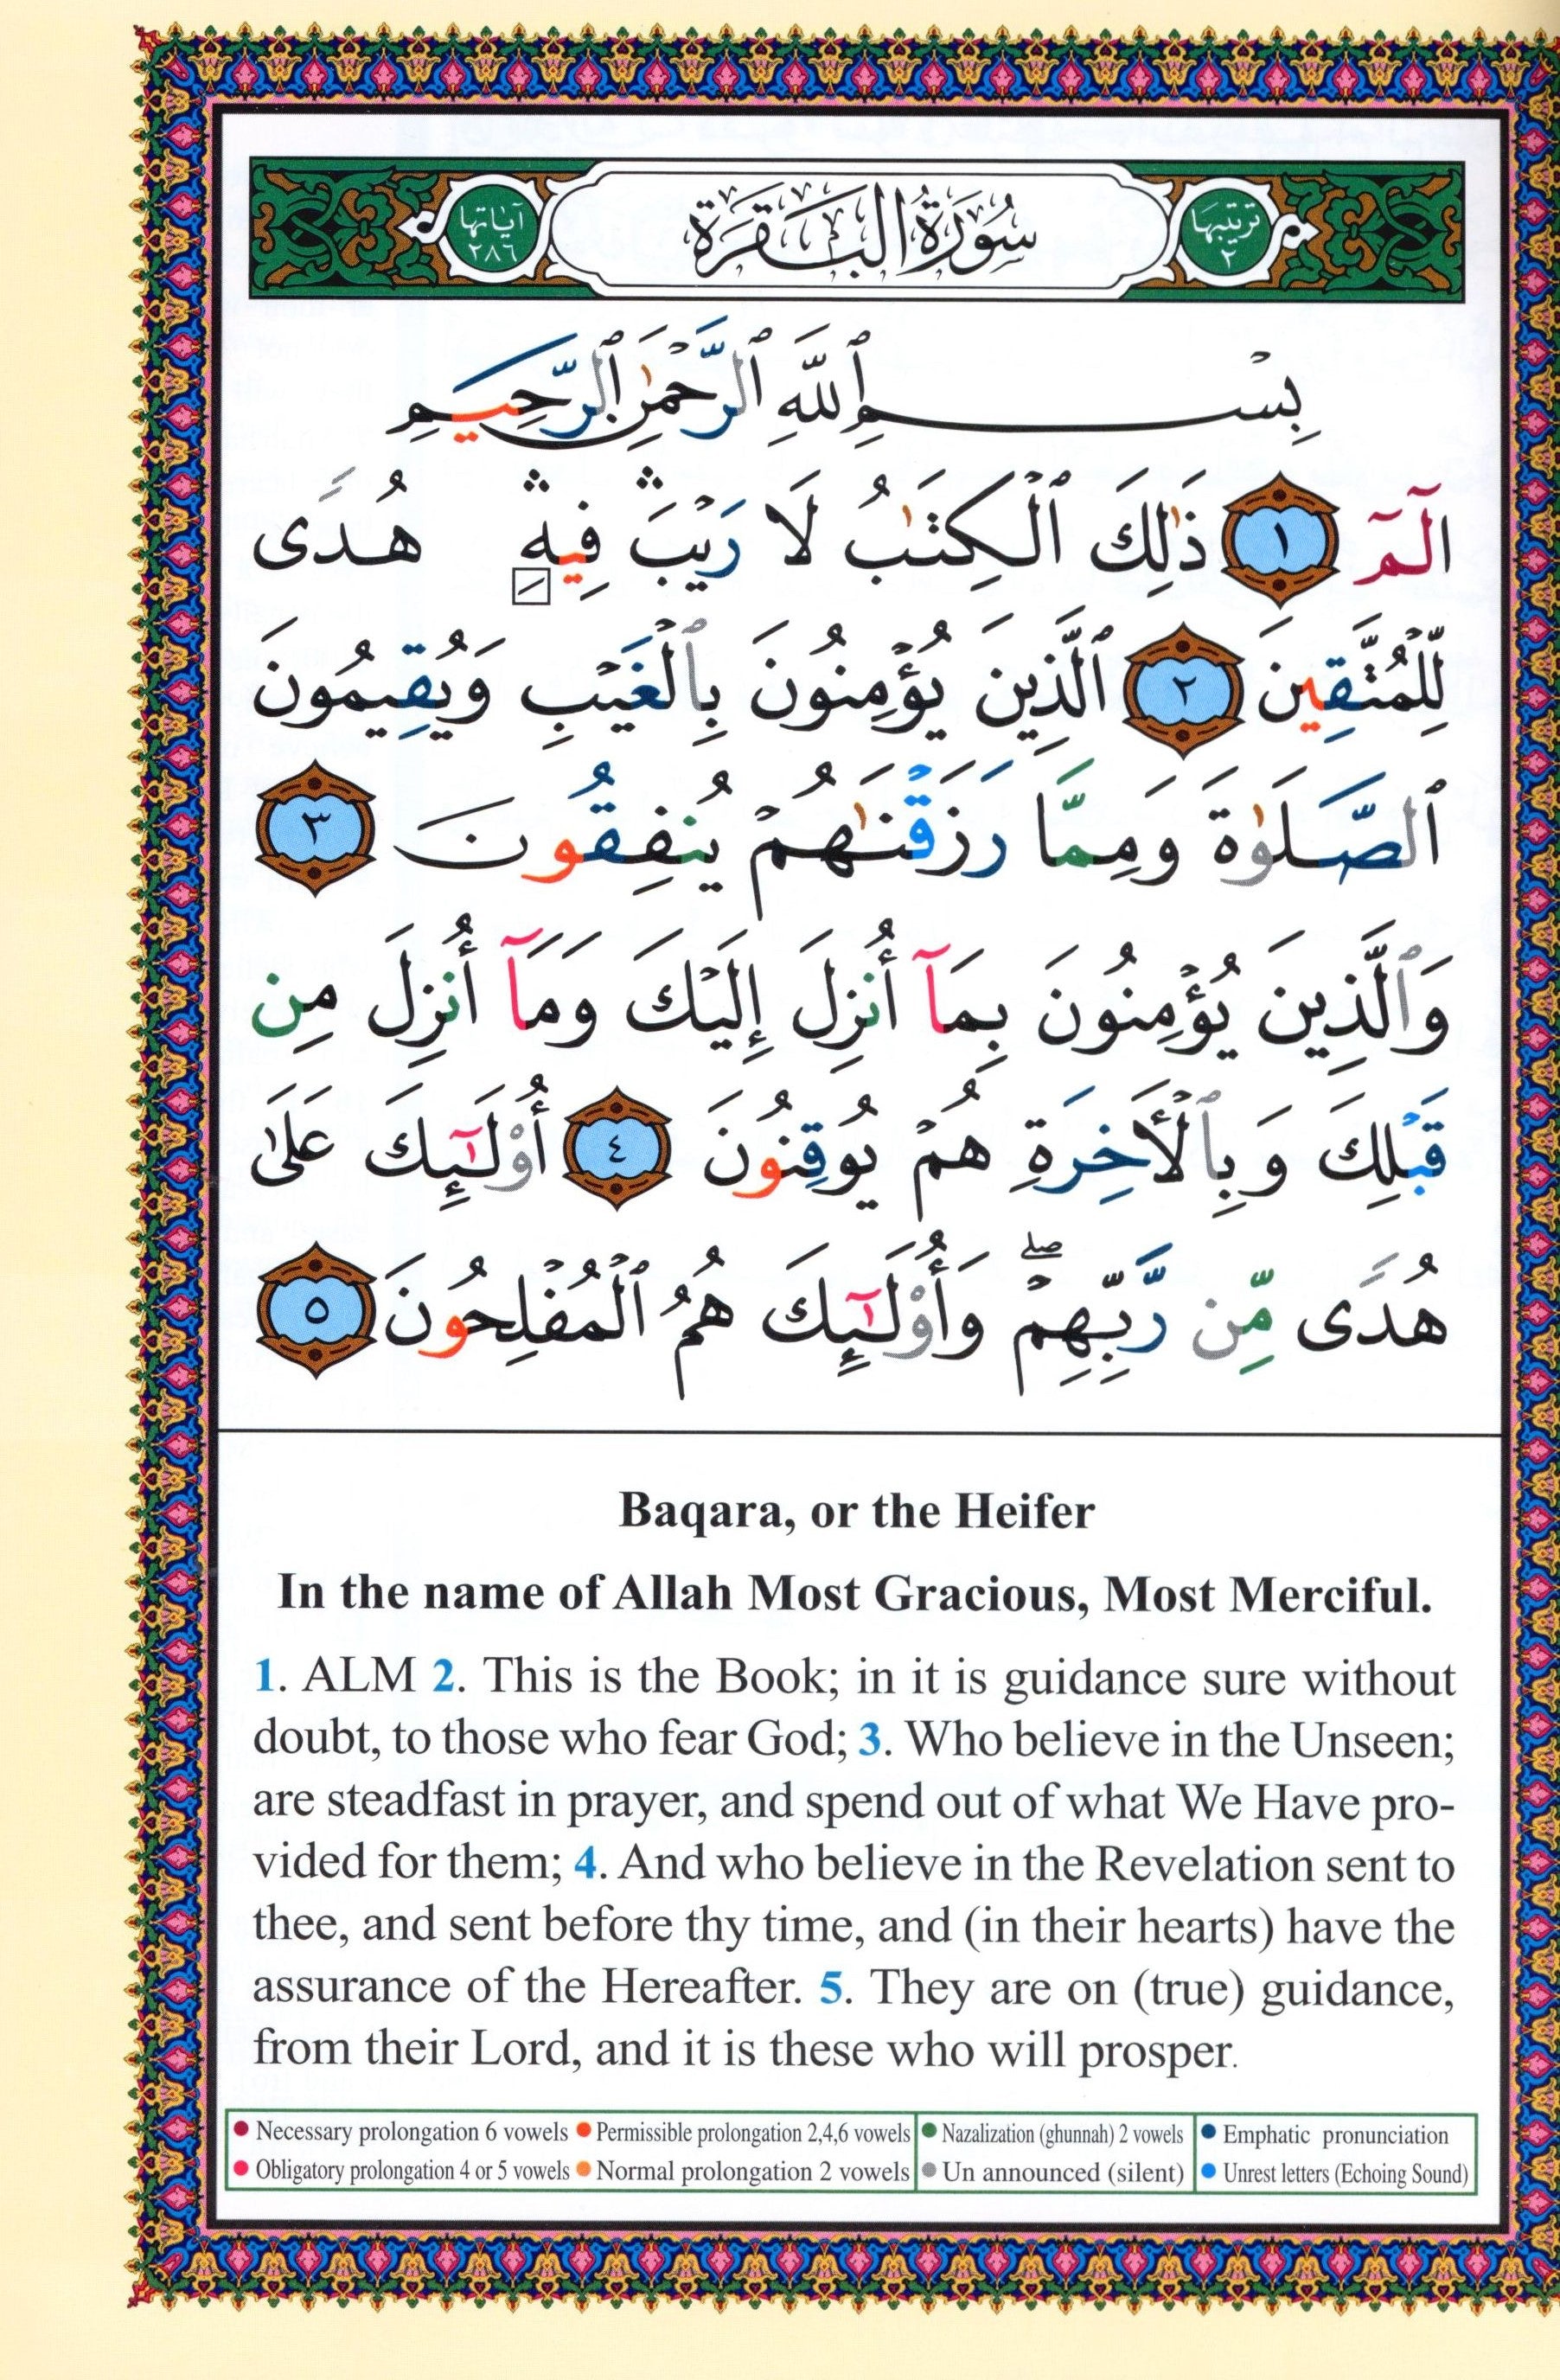 ترتيبها ٢
سُورَةُ الْبَقَرَةِ
آياتها ٢٨٦
بِسْمِ ٱللَّهِ ٱلرَّحْمَٰنِ ٱلرَّحِيمِ
الٓمٓ ١ ذَٰلِكَ ٱلْكِتَٰبُ لَا رَيْبَ ۛ فِيهِ ۛ هُدًى
لِّلْمُتَّقِينَ ٢ ٱلَّذِينَ يُؤْمِنُونَ بِٱلْغَيْبِ وَيُقِيمُونَ
ٱلصَّلَوٰةَ وَمِمَّا رَزَقْنَٰهُمْ يُنفِقُونَ ٣
وَٱلَّذِينَ يُؤْمِنُونَ بِمَآ أُنزِلَ إِلَيْكَ وَمَآ أُنزِلَ مِن
قَبْلِكَ وَبِٱلْأَخِرَةِ هُمْ يُوقِنُونَ ٤ أُو۟لَٰٓئِكَ عَلَىٰ
هُدًى مِّن رَّبِّهِمْ ۖ وَأُو۟لَٰٓئِكَ هُمُ ٱلْمُفْلِحُونَ ٥
Baqara, or the Heifer
In the name of Allah Most Gracious, Most Merciful.
1. ALM 2. This is the Book; in it is guidance sure without
doubt, to those who fear God; 3. Who believe in the Unseen;
are steadfast in prayer, and spend out of what We Have pro-
vided for them; 4. And who believe in the Revelation sent to
thee, and sent before thy time, and (in their hearts) have the
assurance of the Hereafter. 5. They are on (true) guidance,
from their Lord, and it is these who will prosper.
Necessary prolongation 6 vowels Permissible prolongation 2,4,6 vowels Nazalization (ghunnah) 2 vowels Emphatic pronunciation
Obligatory prolongation 4 or 5 vowels Normal prolongation 2 vowels Un announced (silent) Unrest letters (Echoing Sound)